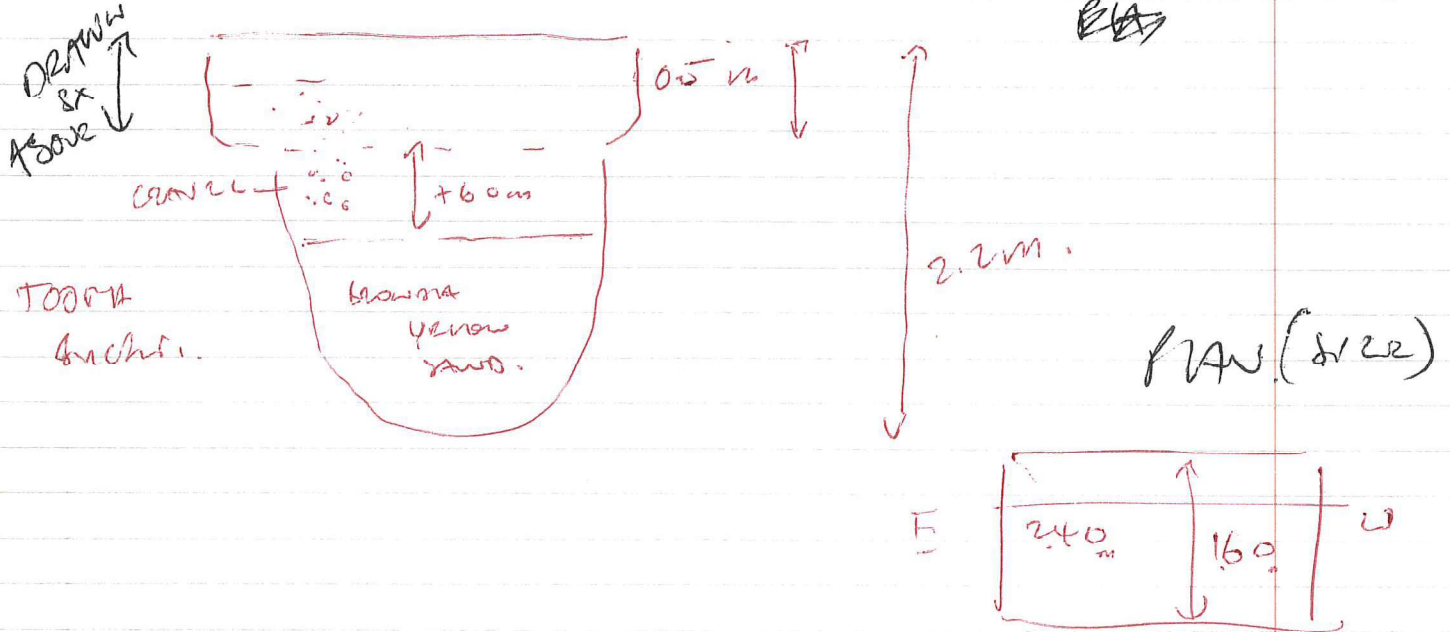 DRAWN
SX
ABOVE
05 m
GRAVEL
+60cm
2.2m.
TOOTH
YELLOW
SAND.
PLAN (SIZE)
E
2.40m
1.60
W